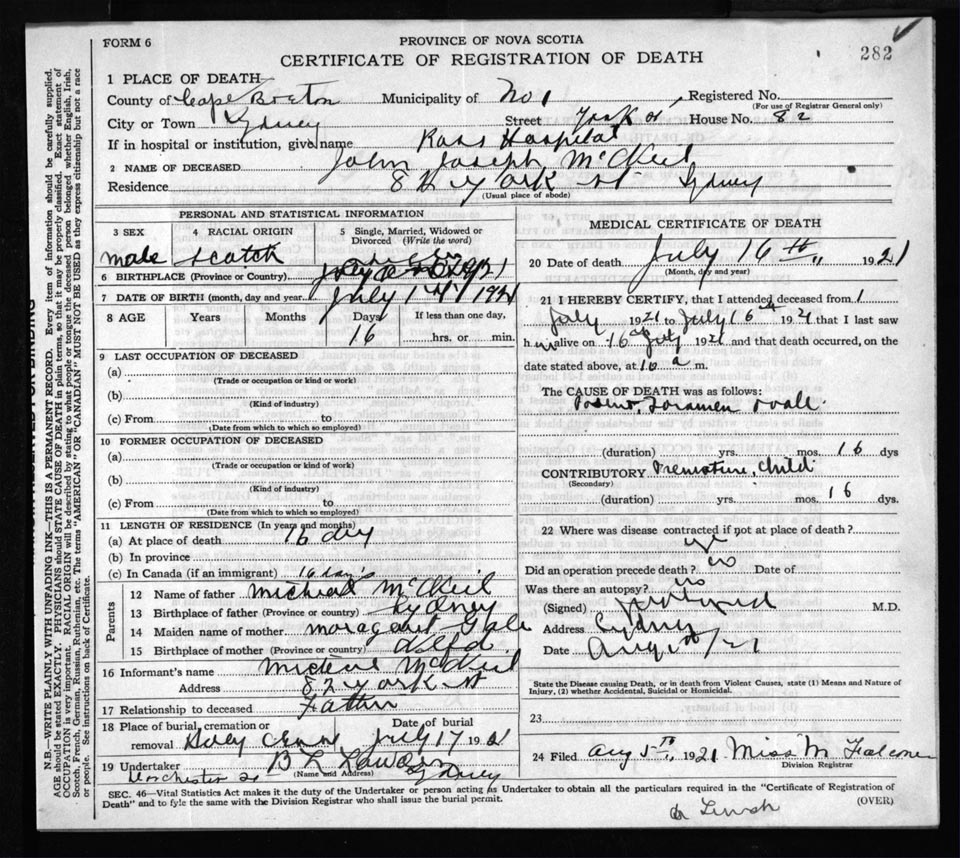 FORM 6
PROVINCE OF NOVA SCOTIA
282
CERTIFICATE OF REGISTRATION OF DEATH
1 PLACE OF DEATH
County of Cape Breton Municipality of No 1 Registered No.
(For use of Registrar General only)
City or Town Sydney Street York St House No. 82
If in hospital or institution, give name Ross Hospital
2 NAME OF DECEASED John Joseph McKeil
Residence 82 York St Sydney
(Usual place of abode)
PERSONAL AND STATISTICAL INFORMATION
3 SEX 4 RACIAL ORIGIN 5 Single, Married, Widowed or Divorced (Write the word)
male scotch
6 BIRTHPLACE (Province or Country)
7 DATE OF BIRTH (month, day and year) July 1921
8 AGE Years Months Days If less than one day,
16 hrs. or min.
9 LAST OCCUPATION OF DECEASED
(a)
(Trade or occupation or kind or work)
(b)
(Kind of industry)
(c) From to
(Date from which to which so employed)
10 FORMER OCCUPATION OF DECEASED
(a)
(Trade or occupation or kind of work)
(b)
(Kind of industry)
(c) From to
(Date from which to which so employed)
11 LENGTH OF RESIDENCE (In years and months)
(a) At place of death 16 dys
(b) In province
(c) In Canada (if an immigrant) 16 days
Parents
12 Name of father Michael McKeil
13 Birthplace of father (Province or country) Sydney
14 Maiden name of mother Margaret Gale
15 Birthplace of mother (Province or Country) Nfld
16 Informant's name Michael McKeil
Address 82 York St
17 Relationship to deceased Father
18 Place of burial, cremation or removal Holy Cross Date of burial July 17 1921
19 Undertaker B L Sydney
(Name and Address)
Dorchester St
MEDICAL CERTIFICATE OF DEATH
20 Date of death July 16th 1921
(Month, day and year)
21 I HEREBY CERTIFY, that I attended deceased from 1
July 1921 to July 16th 1921 that I last saw
him alive on 16 July 1921 and that death occurred, on the
date stated above, at 10 a m.
The CAUSE OF DEATH was as follows:
Patent Foramen Ovale
(duration) yrs. mos. 16 dys
CONTRIBUTORY Premature Child
(Secondary)
(duration) yrs. mos. 16 dys.
22 Where was disease contracted if not at place of death?
Did an operation precede death? no Date of
Was there an autopsy? no
(Signed) M.D.
Address Sydney
Date Aug 1st/21
State the Disease causing Death, or in death from Violent Causes, state (1) Means and Nature of
Injury, (2) whether Accidental, Suicidal or Homicidal.
23
24 Filed Aug 5th 1921 Miss M Falconer
Division Registrar
SEC. 46—Vital Statistics Act makes it the duty of the Undertaker or person acting as Undertaker to obtain all the particulars required in the "Certificate of Registration of
Death" and to file the same with the Division Registrar who shall issue the burial permit.
(OVER)
N.B.—WRITE PLAINLY WITH UNFADING INK—THIS IS A PERMANENT RECORD. Every item of information should be carefully supplied.
AGE should be stated EXACTLY. PHYSICIANS should STATE CAUSE OF DEATH in plain terms, so that it may be properly classified. Exact statement of
OCCUPATION is very important. RACIAL ORIGIN will be described by stating to what people or tongue the deceased person belonged whether English, Irish,
Scotch, French, German, Russian, Ruthenian, etc. The terms "AMERICAN" OR "CANADIAN" MUST NOT BE USED as they express citizenship but not a race
or people. See instructions on back of Certificate.